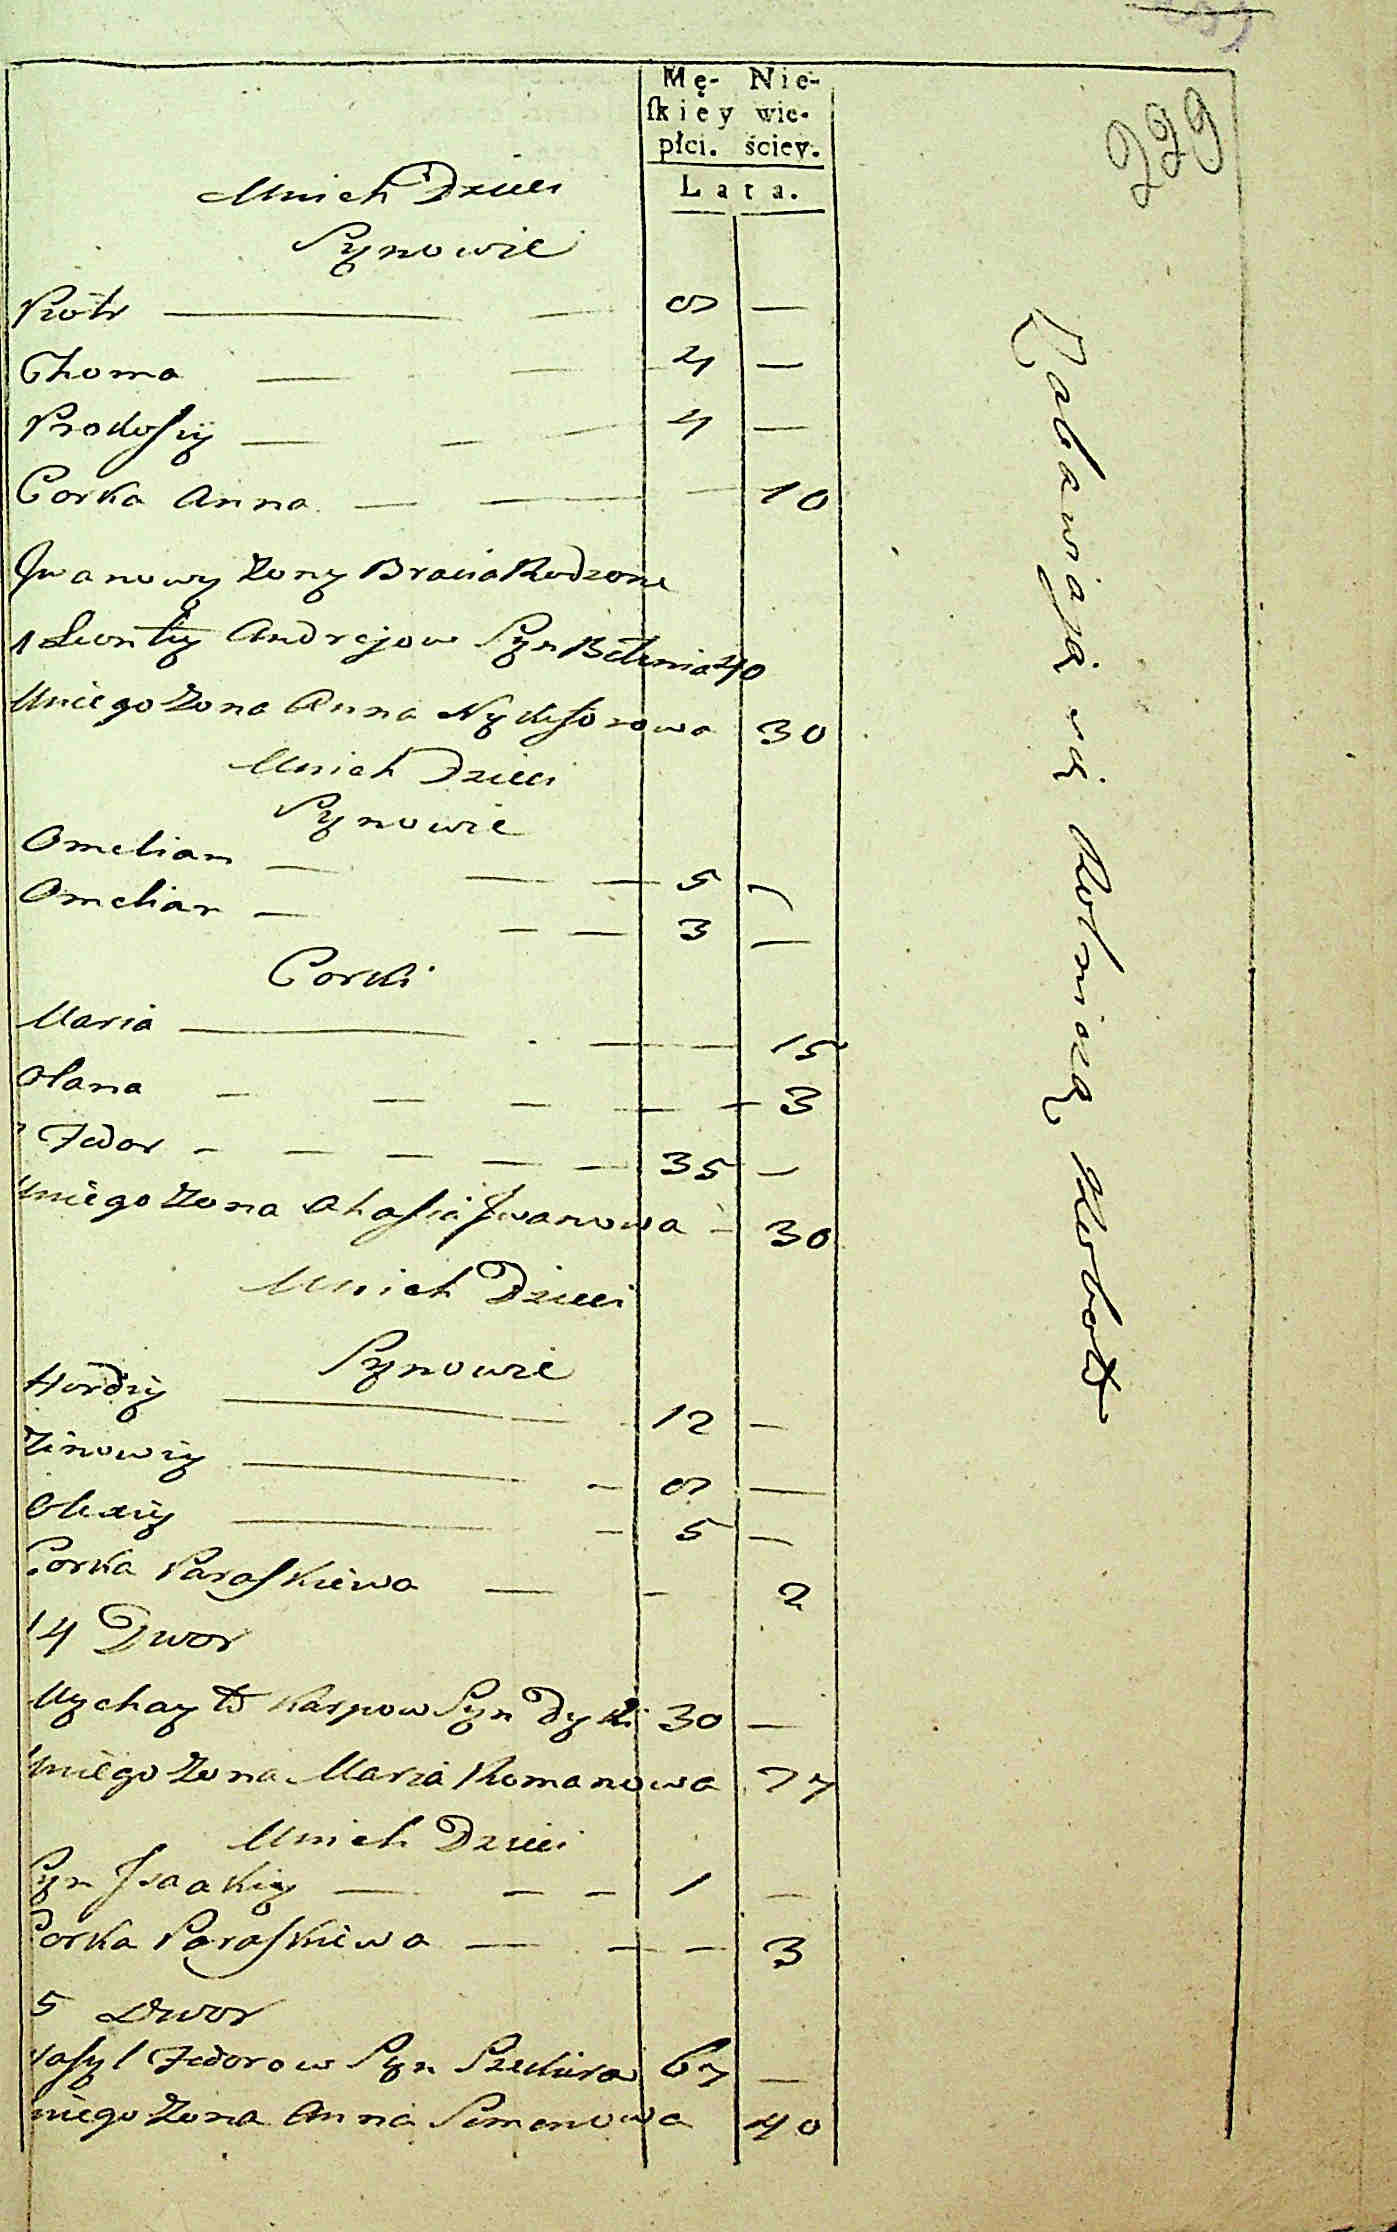 229
Mę- Nie-
ſkiey wie-
płci. ściey.
Lata.
Unich Dzieci
Synowie
Piotr — — 8 —
Choma — — 4 —
Prokofiy — — 4 —
Corka Anna — — — 10
Iwanowy Żony Bracia Rodzone
1 Leontiy Andrejow Syn 40
Uniego Żona Anna Nykiforowa 30
Unich Dzieci
Synowie
Omelian — — — 5 —
Omelian — — — 3 —
Corki
Maria — — — 15
Olana — — — — — 3
Fedor — — — — — 35 —
Uniego Żona Ahafia Iwanowa — 30
Unich Dzieci
Synowie
Hordiy — — 12 —
Zinowiy — — 8 —
Olexiy — — 5 —
Corka Paraskiewa — — 2
14 Dwor
Mychayło Karpow Syn Dyki 30 —
Uniego Żona Maria Romanowa 27
Unich Dzieci
Syn Isaakiy — — — 1 —
Corka Paraskiewa — — — 3
5 Dwor
Wasyl Fedorow Syn 67 —
niego Żona Anna Semenowa 40
Zabawiają się Rolniczą Robotą